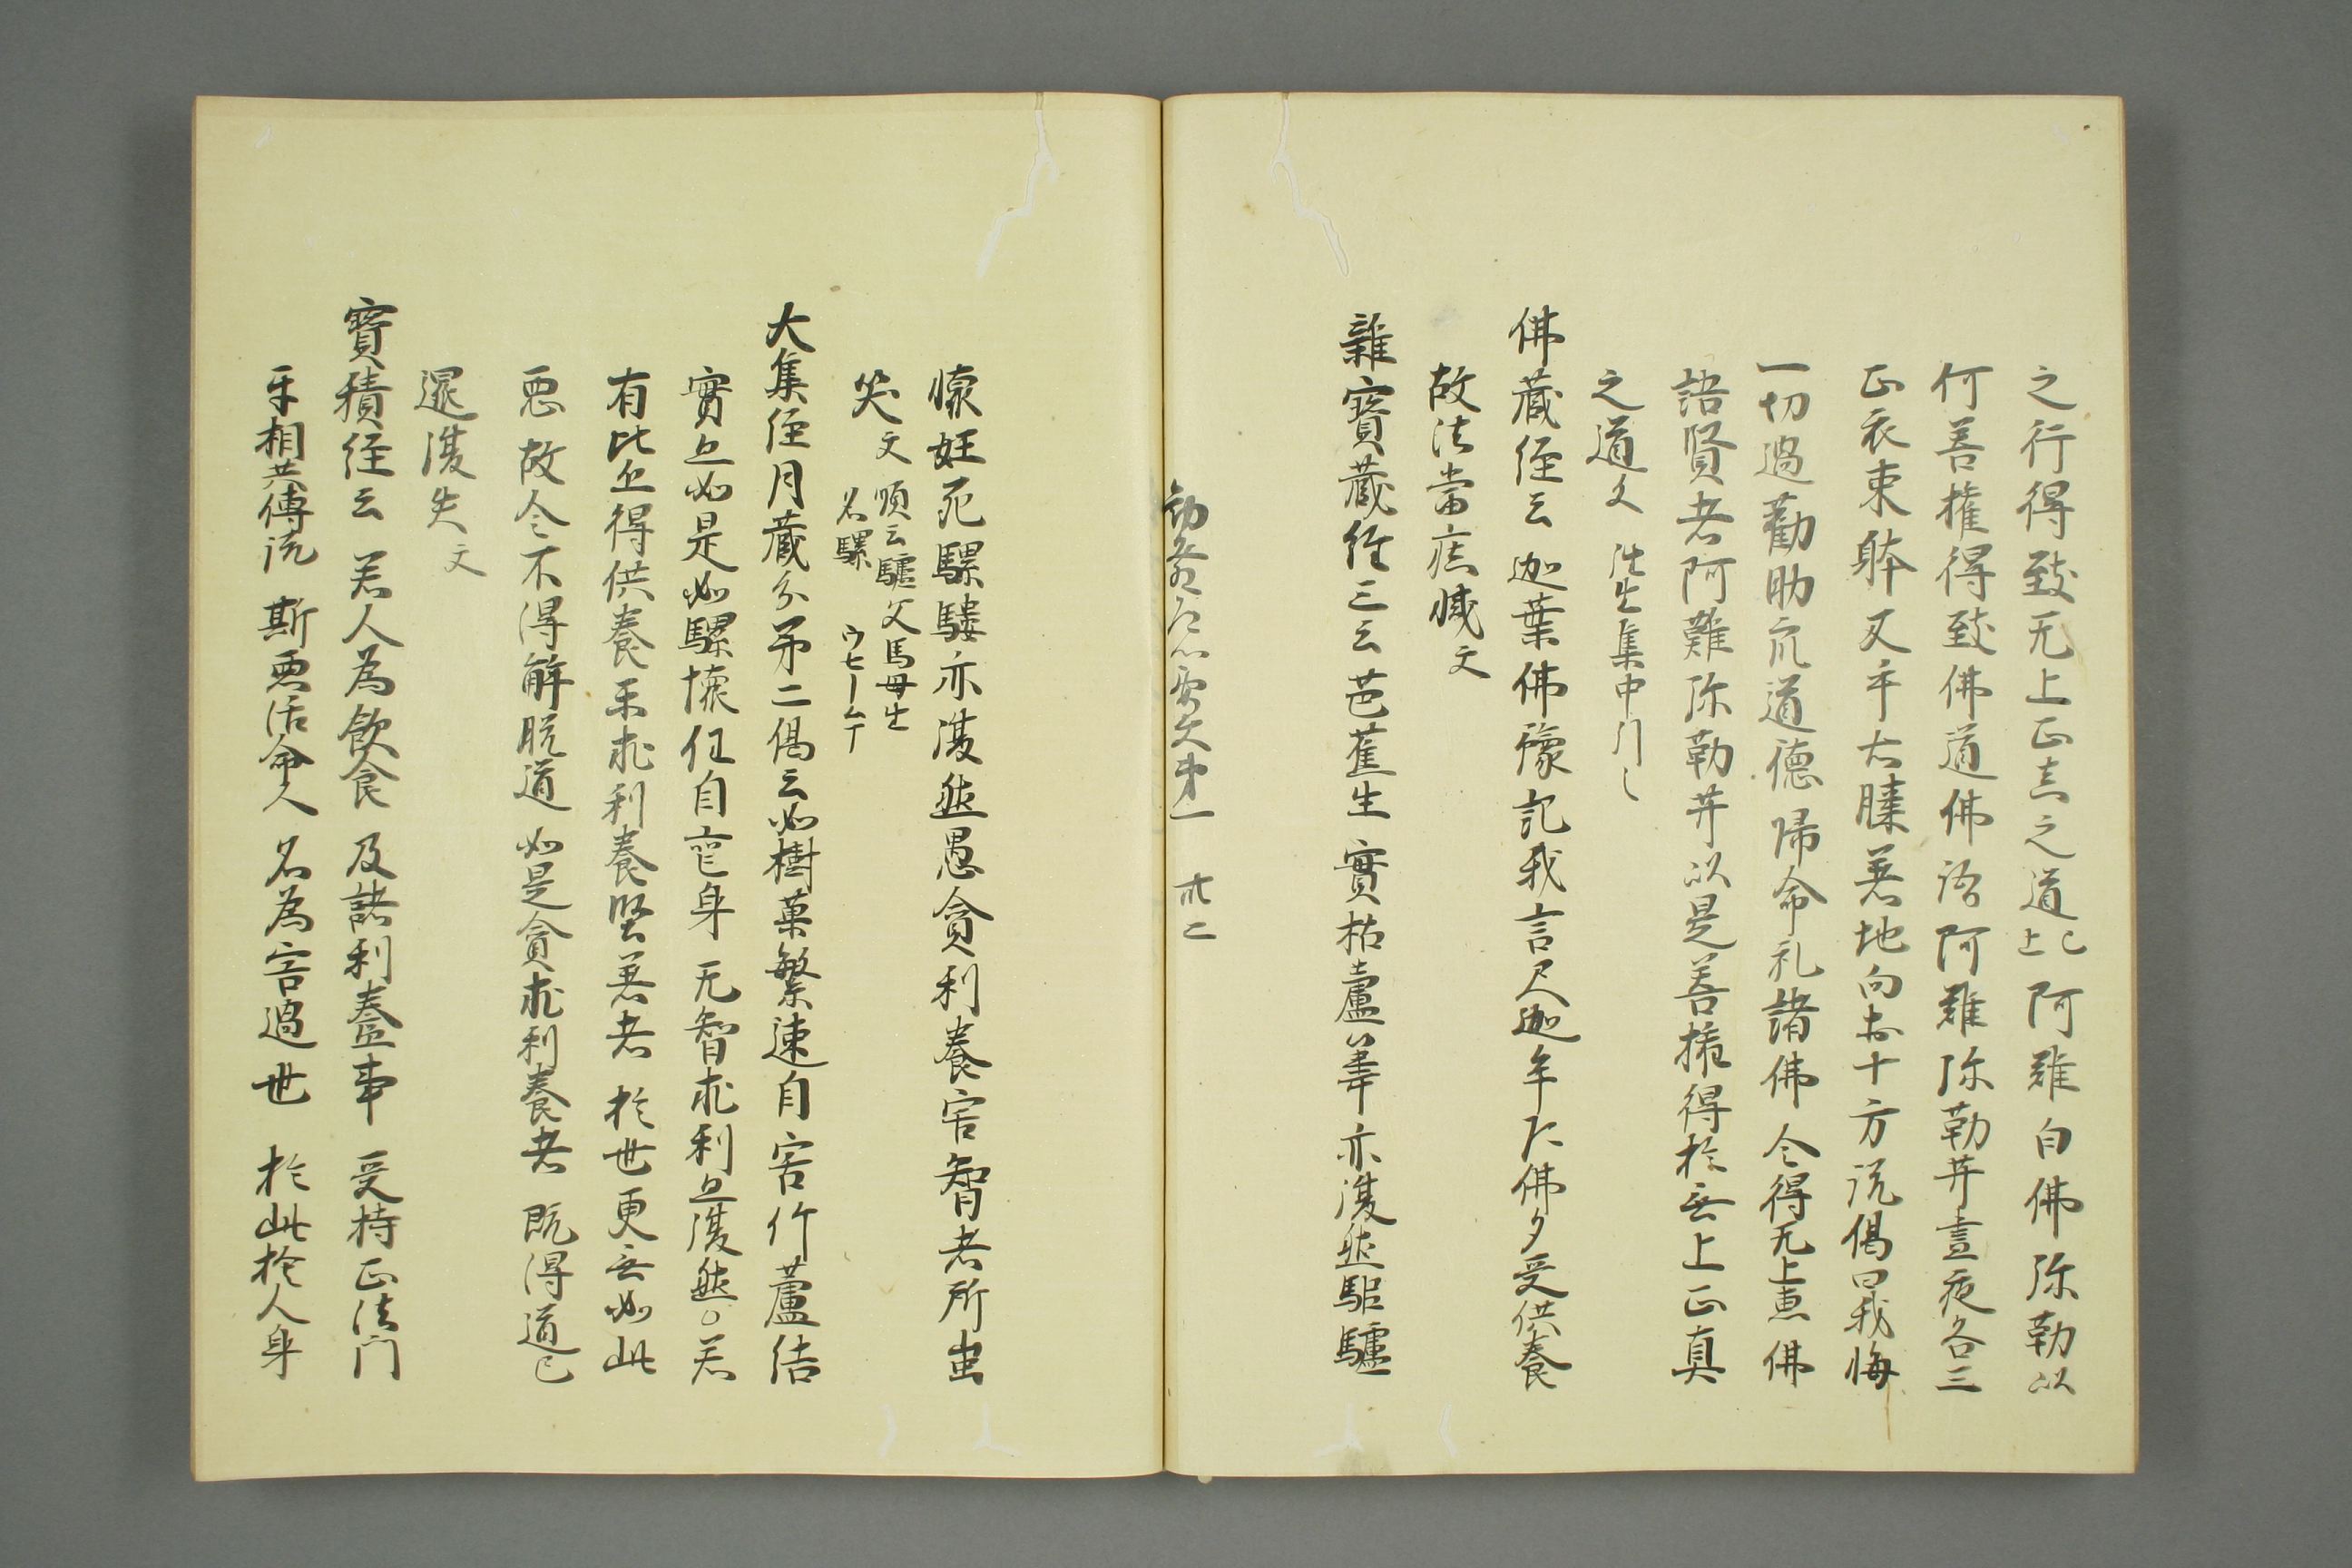 之行得致无上正真之道已上阿難白佛弥勒以
何善権得致佛道佛語阿難弥勒井晝夜各三
正衣束躰叉手右膝著地向於十方説偈曰我悔
一切過勸助衆道徳帰命礼諸佛令得无上恵佛
語賢者阿難弥勒井以是善権得於無上正真
之道文 往生集中
佛蔵経云迦葉佛豫記我言尺迦牟尼佛多受供養
故法當疾滅文
雜寶蔵経三云芭蕉生實枯蘆葦亦復然駏驢
第一 卅二
懐妊死騾騾亦復然愚貪利養害智者所虫
笑文 頌云驢父馬母生
名騾
大集経月蔵分第二偈云如樹菓繁速自害竹蘆結
實亦如是如騾懐任自亡身无智求利亦復然○若
有比丘得供養求利養堅著者於世更無如此
悪故令不得解脱道如是貪求利養者既得道已
還復失文
寶積経云若人為飲食及諸利養事受持正法門
手相共傳説斯悪活命人名為害過世於此於人身